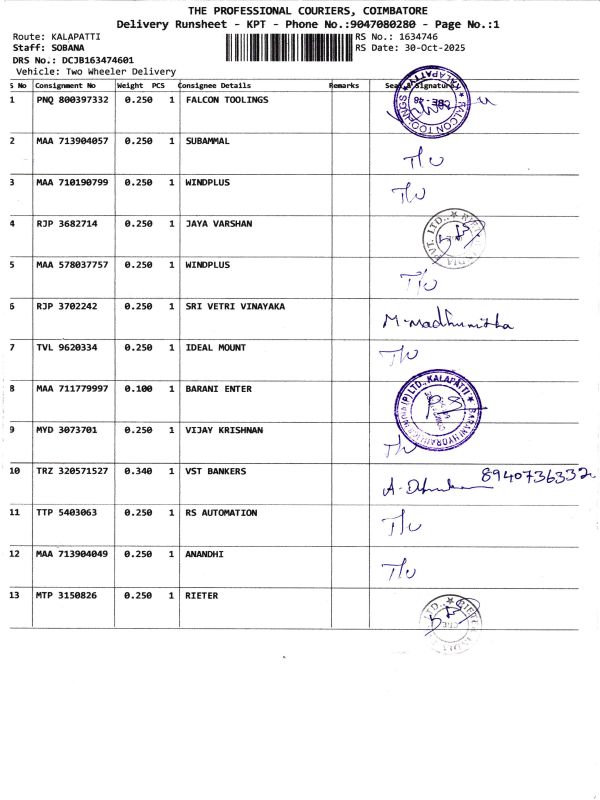 THE PROFESSIONAL COURIERS, COIMBATORE
Delivery Runsheet - KPT - Phone No.:9047080280 - Page No.:1
Route: KALAPATTI
RS No.: 1634746
Staff: SOBANA
RS Date: 30-Oct-2025
DRS No.: DCJB163474601
Vehicle: Two Wheeler Delivery
S No Consignment No Weight PCS Consignee Details Remarks Signature
1 PNQ 800397332 0.250 1 FALCON TOOLINGS
FALCON TOOLINGS KALAPATTY
CBE - 48
2 MAA 713904057 0.250 1 SUBAMMAL T/u
3 MAA 710190799 0.250 1 WINDPLUS T/u
4 RJP 3682714 0.250 1 JAYA VARSHAN
PVT. LTD.,
5 MAA 578037757 0.250 1 WINDPLUS T/u
6 RJP 3702242 0.250 1 SRI VETRI VINAYAKA M-Madhumitha
7 TVL 9620334 0.250 1 IDEAL MOUNT T/u
8 MAA 711779997 0.100 1 BARANI ENTER
BARANI HYDRAULICS INDIA (P) LTD., KALAPATTI
9 MYD 3073701 0.250 1 VIJAY KRISHNAN T/u
10 TRZ 320571527 0.340 1 VST BANKERS 8940736332
11 TTP 5403063 0.250 1 RS AUTOMATION T/u
12 MAA 713904049 0.250 1 ANANDHI T/u
13 MTP 3150826 0.250 1 RIETER